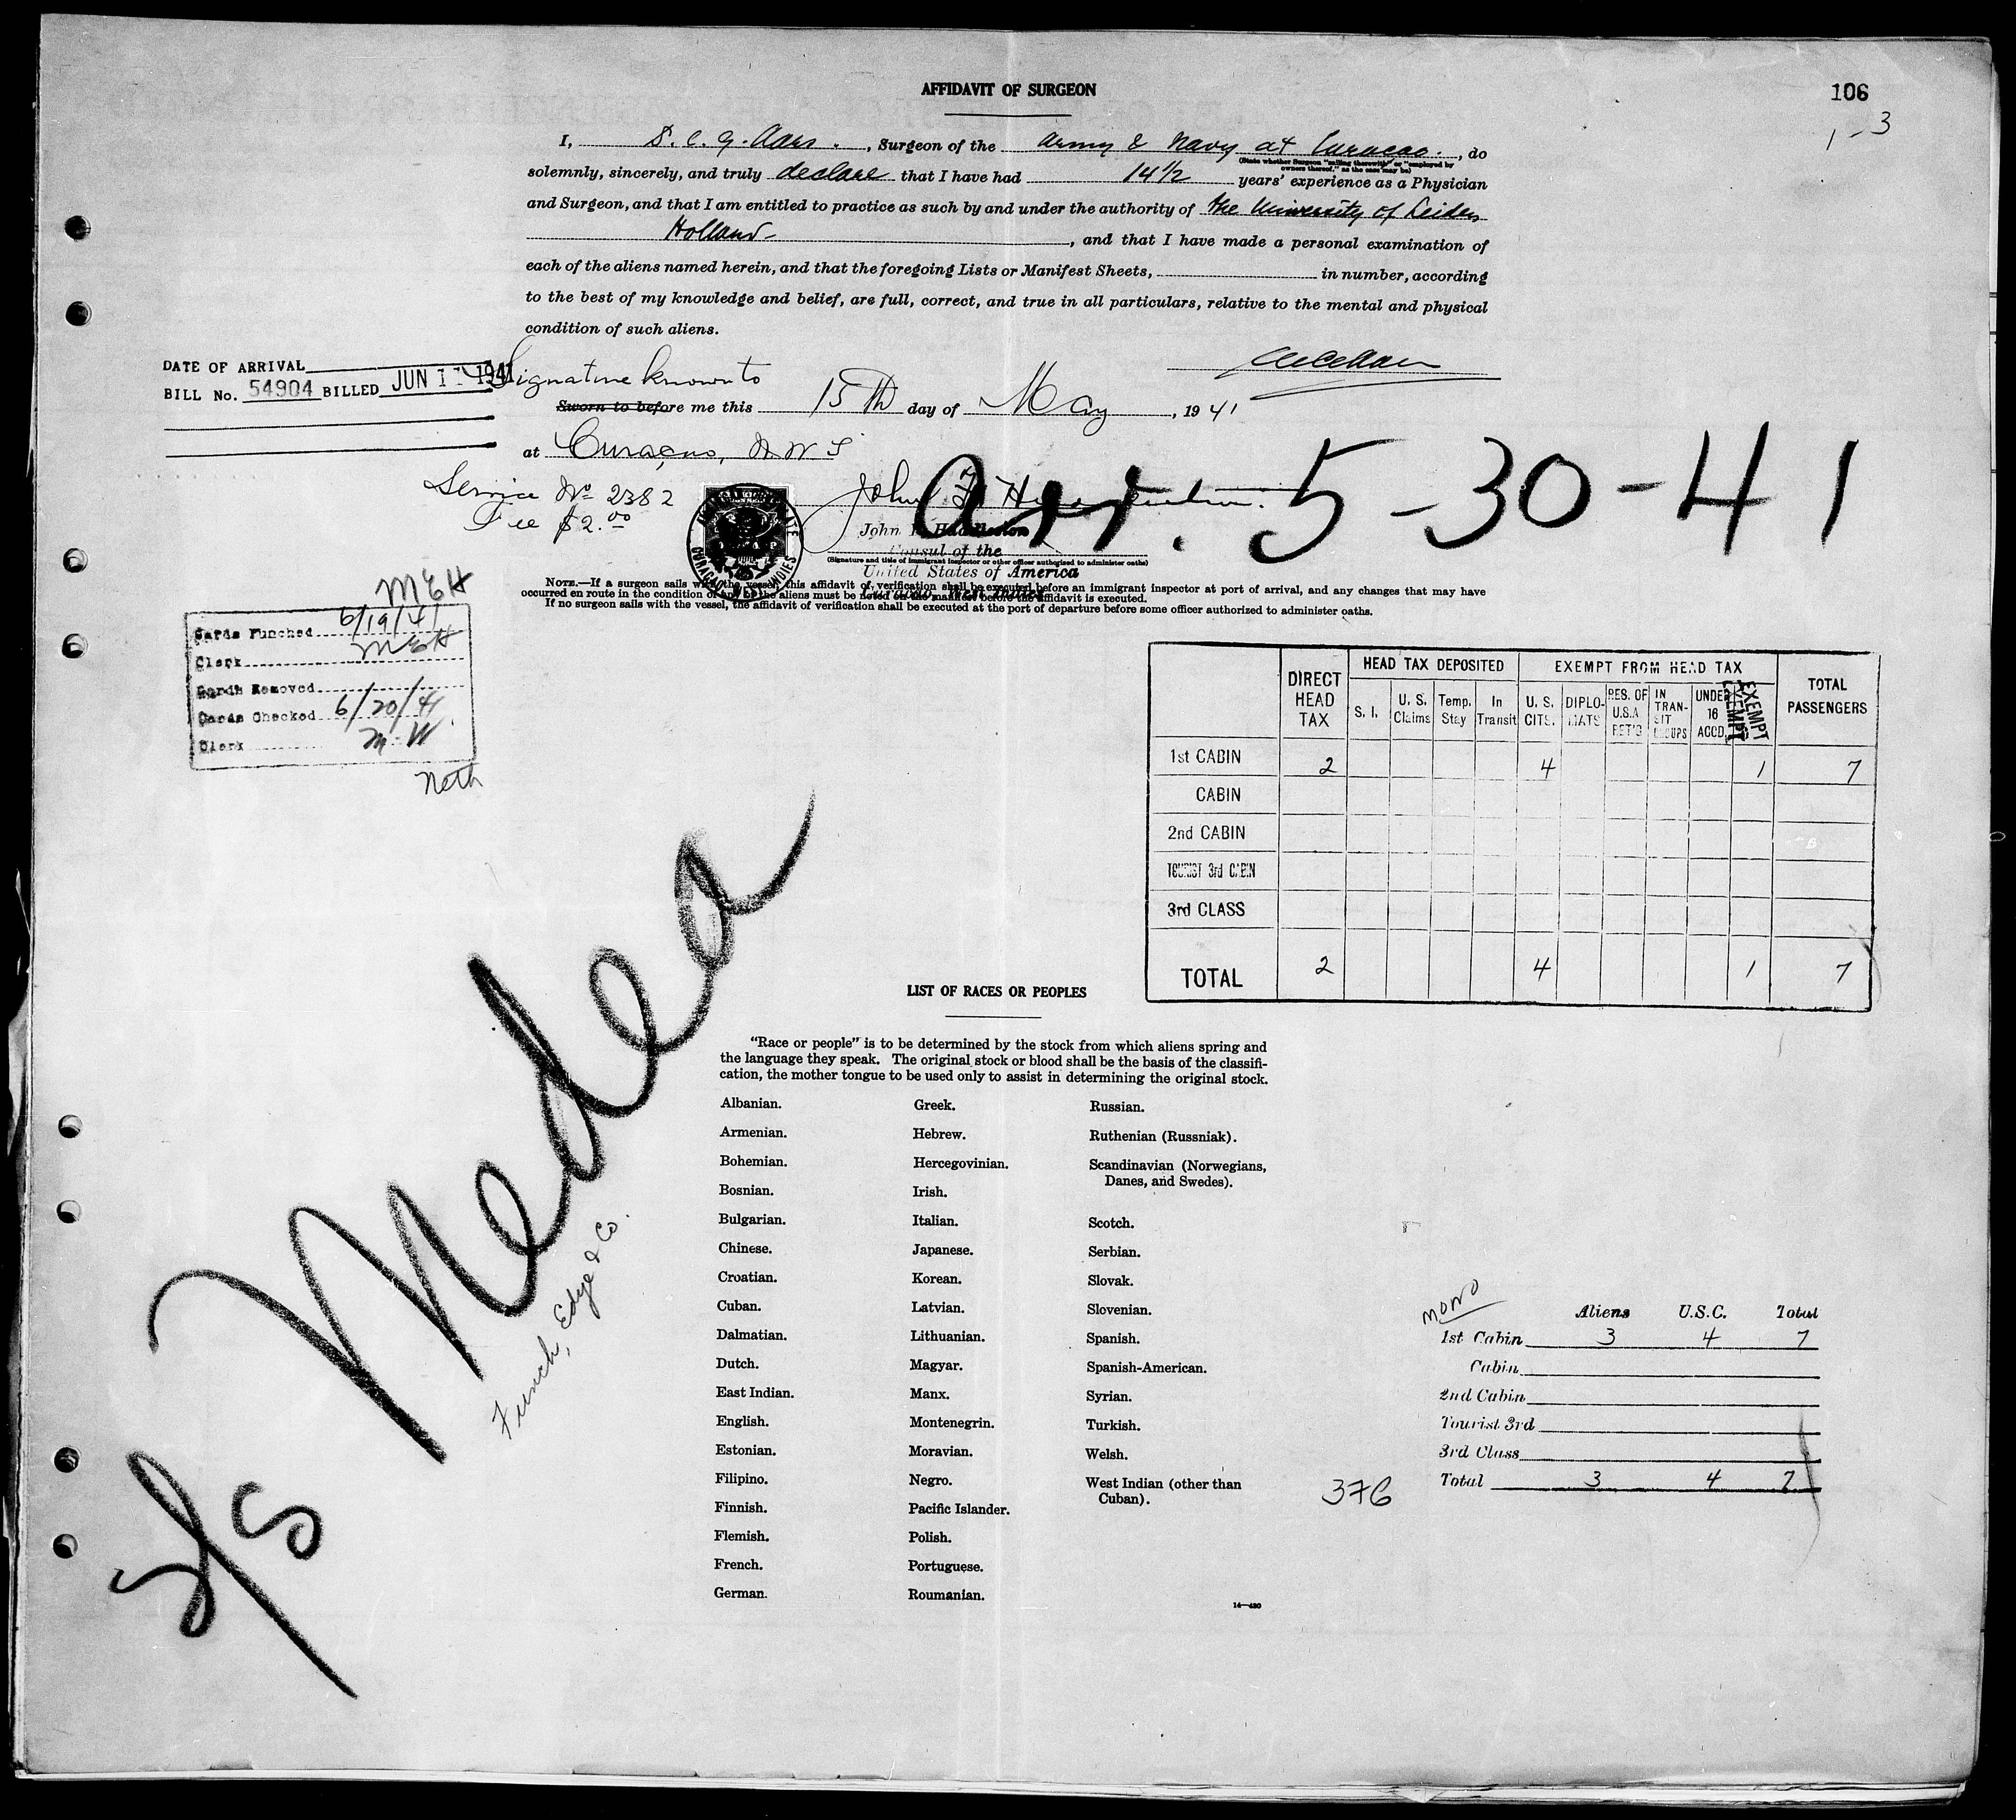 AFFIDAVIT OF SURGEON
106
1-3
I, S. C. G. Aars., Surgeon of the Army & Navy at Curacao., do
(State whether Surgeon "sailing therewith" or "employed by owners thereof," as the case may be)
solemnly, sincerely, and truly declare that I have had 14½ years' experience as a Physician
and Surgeon, and that I am entitled to practice as such by and under the authority of the University of Leiden
Holland, and that I have made a personal examination of
each of the aliens named herein, and that the foregoing Lists or Manifest Sheets, in number, according
to the best of my knowledge and belief, are full, correct, and true in all particulars, relative to the mental and physical
condition of such aliens.
DATE OF ARRIVAL
BILL No. 54904 BILLED JUN 1 1941
Signature known to
Sworn to before me this 15th day of May, 1941
at Curaçao, N W I
Arr. 5-30-41
Service No 2382
Fee $2.00
John F. Huddleston
Consul of the
(Signature and title of immigrant inspector or other officer authorized to administer oaths)
United States of America
Curacao, West Indies
NOTE.—If a surgeon sails with the vessel, this affidavit of verification shall be executed before an immigrant inspector at port of arrival, and any changes that may have
occurred en route in the condition of any of the aliens must be noted on the manifest before the affidavit is executed.
If no surgeon sails with the vessel, the affidavit of verification shall be executed at the port of departure before some officer authorized to administer oaths.
MEH
Cards Punched 6/19/41
Clerk MEH
Cards Removed
Cards Checked 6/20/41
Clerk M.W
Neth
DIRECT HEAD TAX
HEAD TAX DEPOSITED
EXEMPT FROM HEAD TAX
TOTAL PASSENGERS
S. I.
U. S. Claims
Temp. Stay
In Transit
U. S. CITS.
DIPLO-MATS
RES. OF U.S.A RET'G
IN TRAN-SIT GROUPS
UNDER 16 ACCD.
EXEMPT
EXEMPT
1st CABIN 2 4 1 7
CABIN
2nd CABIN
TOURIST 3rd CABIN
3rd CLASS
TOTAL 2 4 1 7
S/S Medea
Funch, Edye & Co.
LIST OF RACES OR PEOPLES
"Race or people" is to be determined by the stock from which aliens spring and
the language they speak. The original stock or blood shall be the basis of the classifi-
cation, the mother tongue to be used only to assist in determining the original stock.
Albanian.
Armenian.
Bohemian.
Bosnian.
Bulgarian.
Chinese.
Croatian.
Cuban.
Dalmatian.
Dutch.
East Indian.
English.
Estonian.
Filipino.
Finnish.
Flemish.
French.
German.
Greek.
Hebrew.
Hercegovinian.
Irish.
Italian.
Japanese.
Korean.
Latvian.
Lithuanian.
Magyar.
Manx.
Montenegrin.
Moravian.
Negro.
Pacific Islander.
Polish.
Portuguese.
Roumanian.
Russian.
Ruthenian (Russniak).
Scandinavian (Norwegians,
Danes, and Swedes).
Scotch.
Serbian.
Slovak.
Slovenian.
Spanish.
Spanish-American.
Syrian.
Turkish.
Welsh.
West Indian (other than
Cuban).
14—420
376
MONO
Aliens U.S.C. Total
1st Cabin 3 4 7
Cabin
2nd Cabin
Tourist 3rd
3rd Class
Total 3 4 7